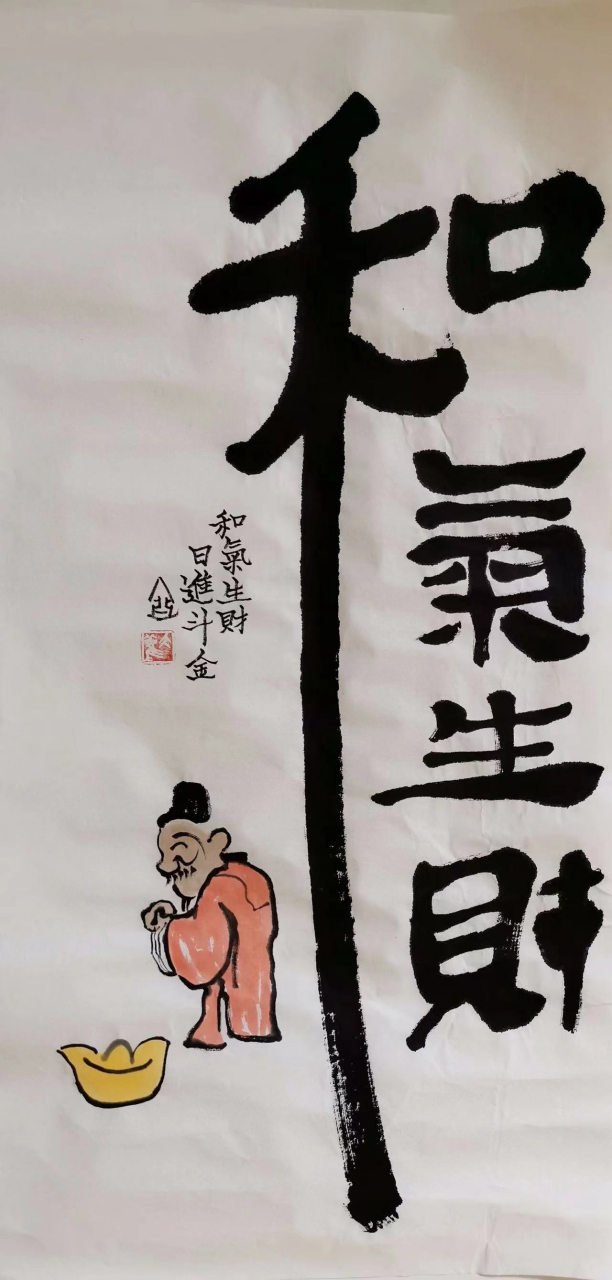 和氣生財
和氣生財
日進斗金